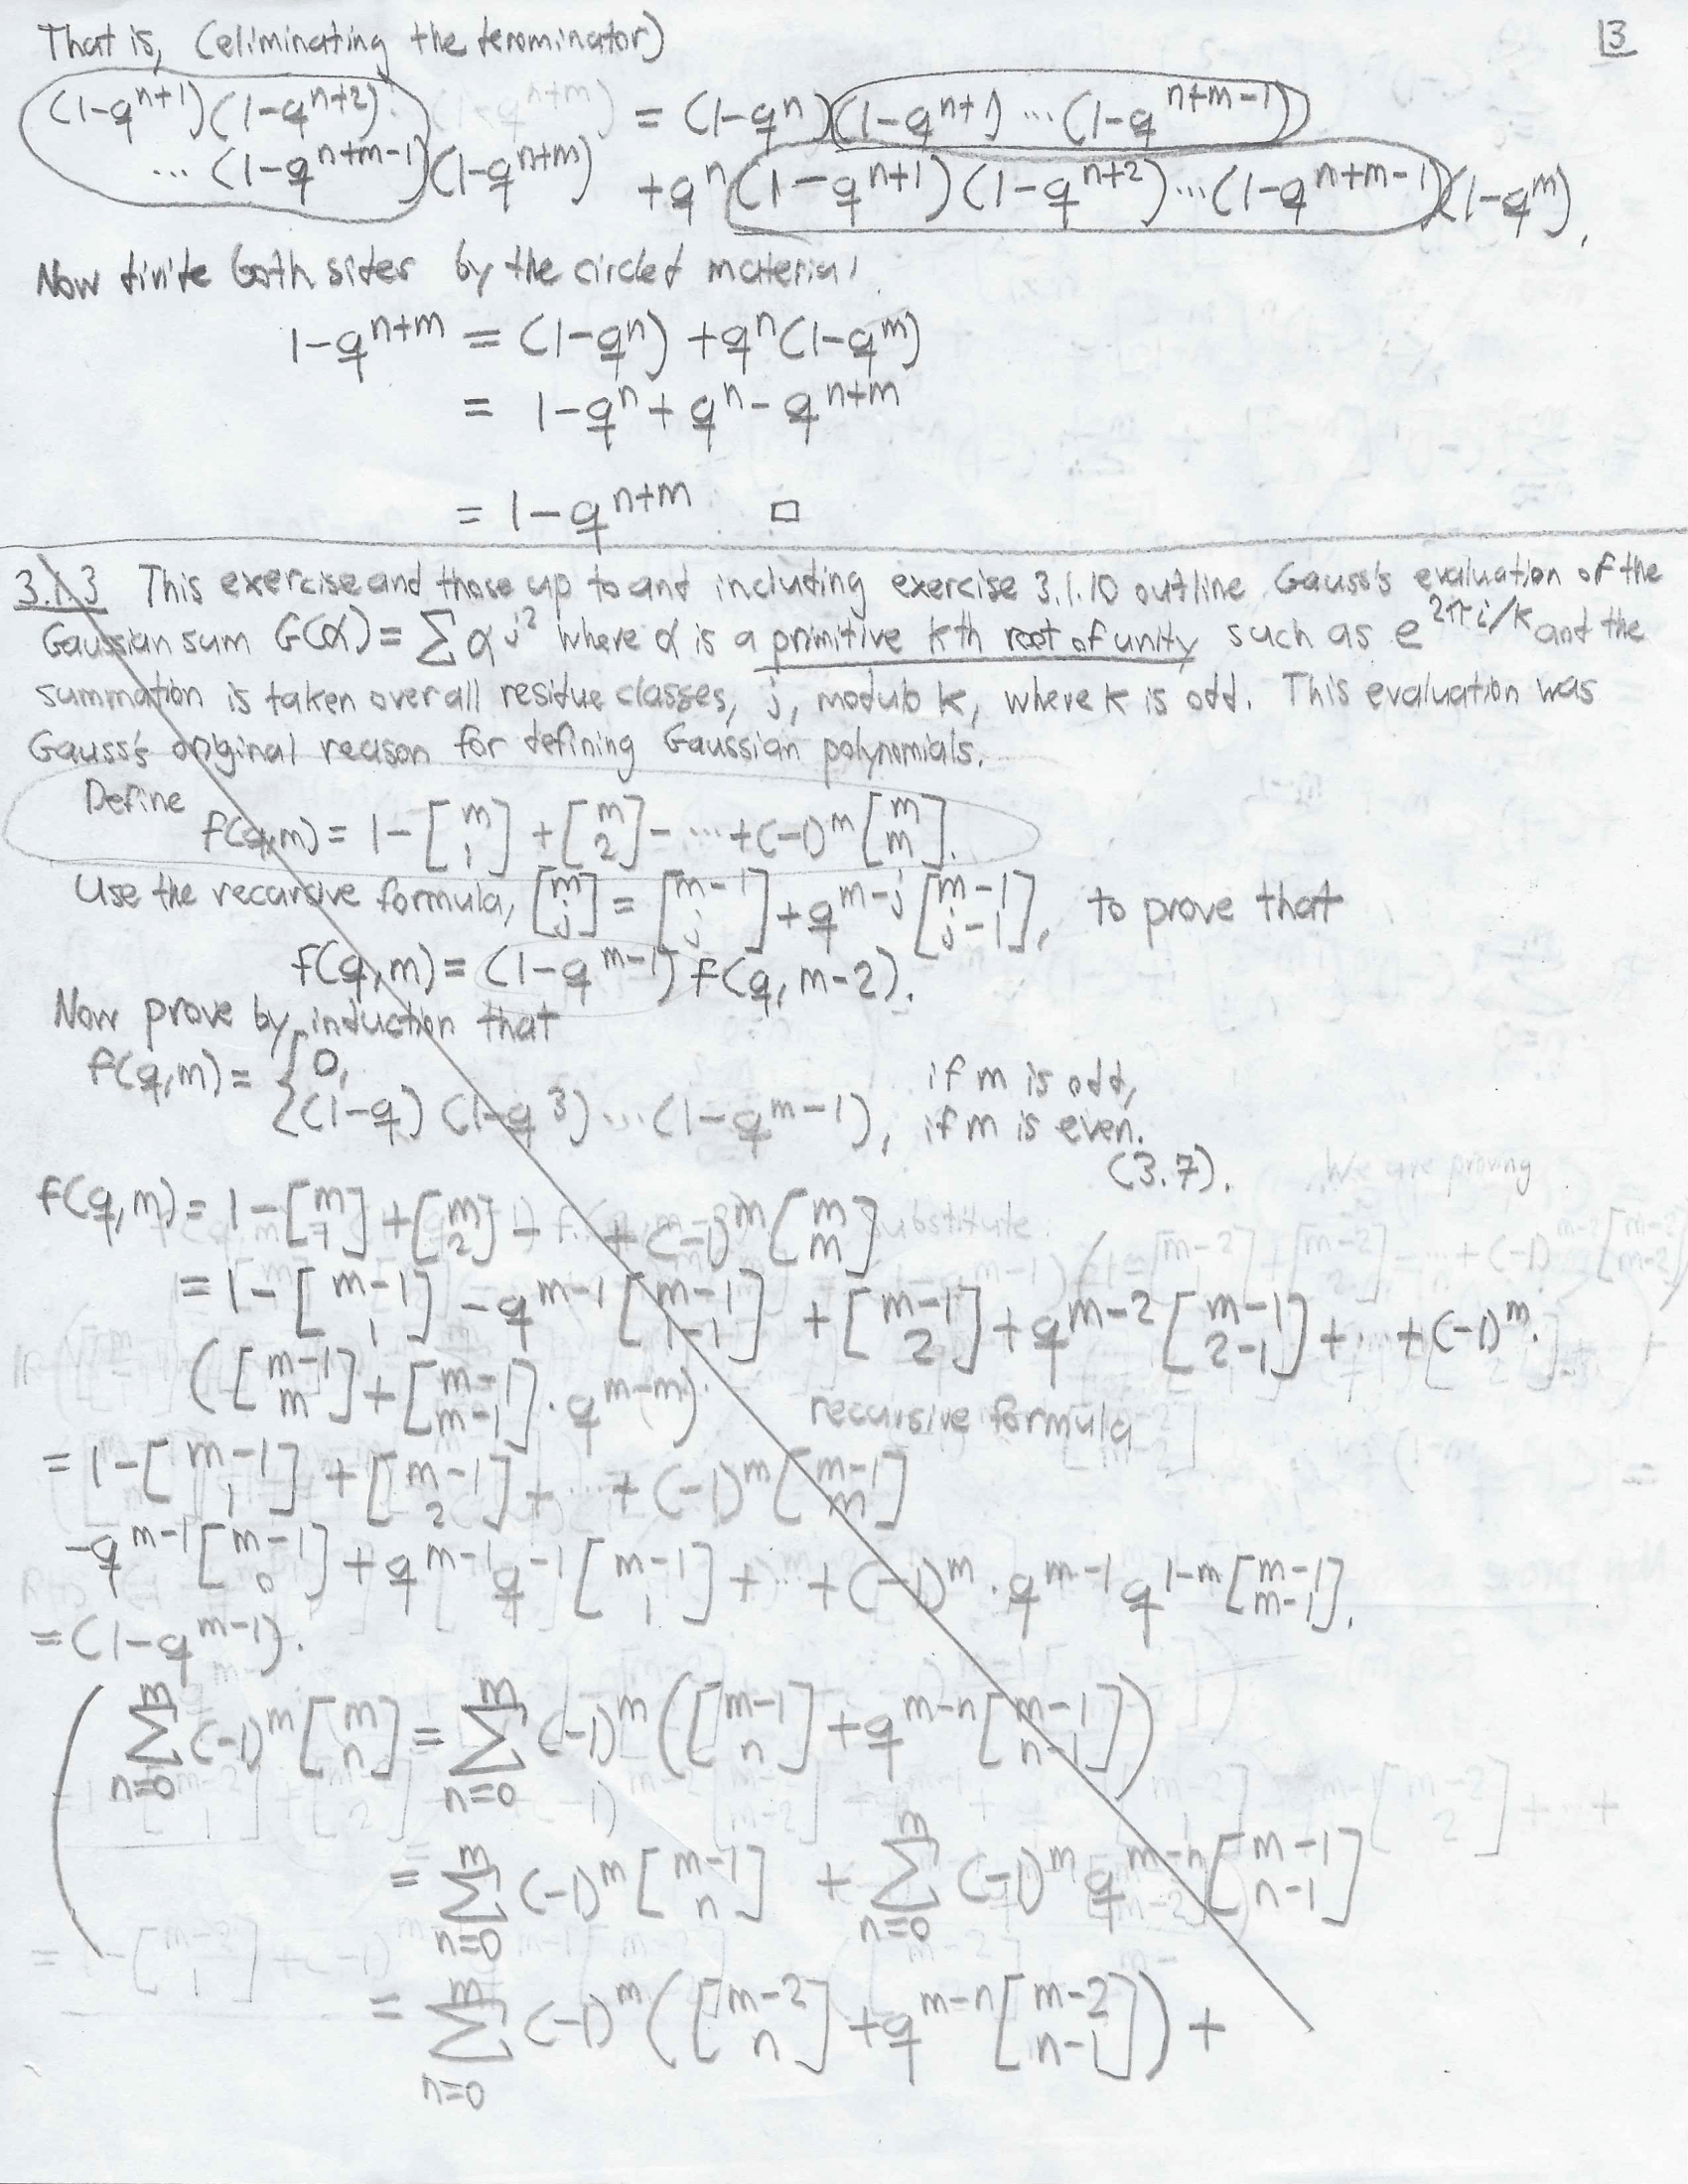 That is, (eliminating the denominator)
13
(1-q^{n+1})(1-q^{n+2}) (1-q^{n+m}) = (1-q^n)(1-q^{n+1}) ... (1-q^{n+m-1})
... (1-q^{n+m-1})(1-q^{n+m}) +q^n(1-q^{n+1})(1-q^{n+2})...(1-q^{n+m-1})(1-q^m).
Now divide both sides by the circled material.
1-q^{n+m} = (1-q^n) + q^n(1-q^m)
= 1-q^n + q^n - q^{n+m}
= 1-q^{n+m} □
3.1.3 This exercise and those up to and including exercise 3.1.10 outline Gauss's evaluation of the
Gaussian sum G(α) = ∑ α^{j^2} where α is a primitive kth root of unity such as e^{2πi/k} and the
summation is taken over all residue classes, j, modulo k, where k is odd. This evaluation was
Gauss's original reason for defining Gaussian polynomials.
Define
f(q,m) = 1 - [m 1] + [m 2] - ... + (-1)^m [m m].
Use the recursive formula, [m j] = [m-1 j] + q^{m-j} [m-1 j-1], to prove that
f(q,m) = (1-q^{m-1}) f(q, m-2).
Now prove by induction that
f(q,m) = { 0, if m is odd,
(1-q)(1-q^3)...(1-q^{m-1}), if m is even.
(3.7).
We are proving
f(q,m) = 1 - [m 1] + [m 2] - + (-1)^m [m m] substitute:
= 1 - [m-1 1] - q^{m-1} [m-1 1-1] + [m-1 2] + q^{m-2} [m-1 2-1] + ... + (-1)^m.
([m-1 m] + [m-1 m-1] · q^{m-m}).
recursive formula
= 1 - [m-1 1] + [m-1 2] + ... + (-1)^m [m-1 m]
-q^{m-1} [m-1 0] + q^{m-1} q^{-1} [m-1 1] + ... + (-1)^m · q^{m-1} q^{1-m} [m-1 m-1].
= (1-q^{m-1}).
( ∑_{n=0}^m (-1)^m [m n] = ∑_{n=0}^m (-1)^m ([m-1 n] + q^{m-n} [m-1 n-1])
= ∑_{n=0}^m (-1)^m [m-1 n] + ∑_{n=0}^m (-1)^m q^{m-n} [m-1 n-1]
= ∑_{n=0}^m (-1)^m ([m-2 n] + q^{m-n} [m-2 n-1]) +